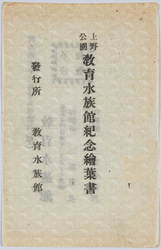 上野公園 教育水族館紀念繪葉書
發行所 教育水族館